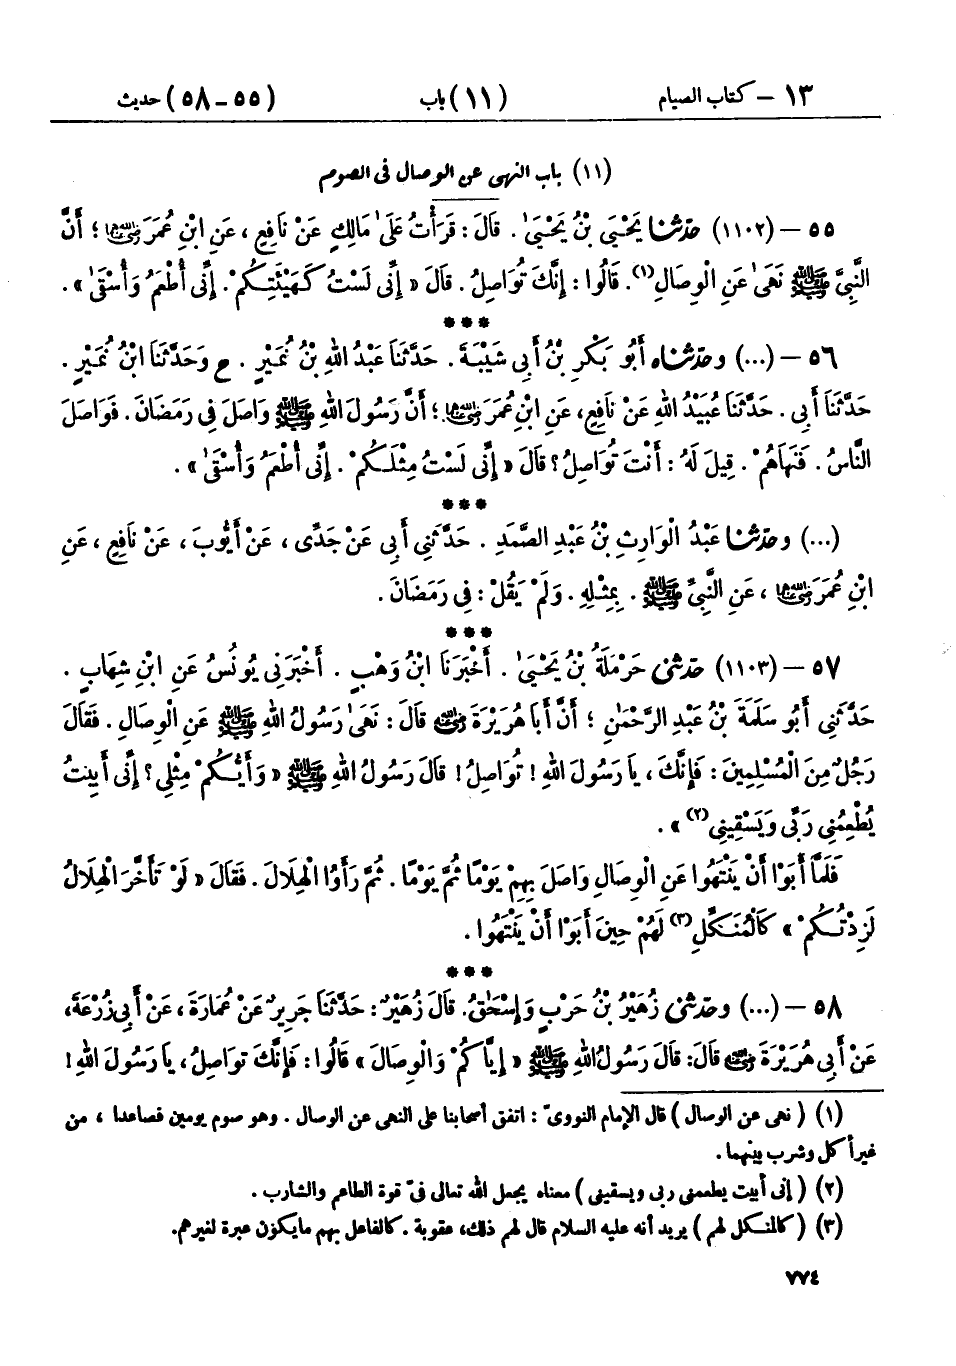 ١٣ – كتاب الصيام (١١) باب (٥٥ – ٥٨) حديث
(١١) باب النهى عن الوصال فى الصوم
٥٥ – (١١٠٢) حدّثنا يَحْيَىٰ بْنُ يَحْيَىٰ . قَالَ : قَرَأْتُ عَلَىٰ مَالِكٍ عَنْ نَافِعٍ ، عَنِ ابْنِ عُمَرَ رضي الله عنهما ؛ أَنَّ
النَّبِيَّ ﷺ نَهَىٰ عَنِ الْوِصَالِ(١). قَالُوا : إِنَّكَ تُوَاصِلُ . قَالَ « إِنِّى لَسْتُ كَهَيْئَتِكُمْ. إِنِّى أُطْعَمُ وَأُسْقَىٰ » .
***
٥٦ – (...) وحدّثناه أَبُو بَكْرِ بْنُ أَبِى شَيْبَةَ . حَدَّثَنَا عَبْدُ اللهِ بْنُ نُمَيْرٍ . ع وَحَدَّثَنَا ابْنُ نُمَيْرٍ .
حَدَّثَنَا أَبِى . حَدَّثَنَا عُبَيْدُ اللهِ عَنْ نَافِعٍ، عَنِ ابْنِ عُمَرَ رضي الله عنهما ؛ أَنَّ رَسُولَ اللهِ ﷺ وَاصَلَ فِى رَمَضَانَ . فَوَاصَلَ
النَّاسُ . فَنَهَاهُمْ . قِيلَ لَهُ : أَنْتَ تُوَاصِلُ ؟ قَالَ « إِنِّى لَسْتُ مِثْلَكُمْ . إِنِّى أُطْعَمُ وَأُسْقَىٰ » .
***
(...) وحدّثنا عَبْدُ الْوَارِثِ بْنُ عَبْدِ الصَّمَدِ . حَدَّثَنِى أَبِى عَنْ جَدِّى ، عَنْ أَيُّوبَ ، عَنْ نَافِعٍ ، عَنِ
ابْنِ عُمَرَ رضي الله عنهما ، عَنِ النَّبِىِّ ﷺ . بِمِثْلِهِ . وَلَمْ يَقُلْ : فِى رَمَضَانَ .
***
٥٧ – (١١٠٣) حدّثنى حَرْمَلَةُ بْنُ يَحْيَىٰ . أَخْبَرَنَا ابْنُ وَهْبٍ . أَخْبَرَنِى يُونُسُ عَنِ ابْنِ شِهَابٍ .
حَدَّثَنِى أَبُو سَلَمَةَ بْنُ عَبْدِ الرَّحْمَٰنِ ؛ أَنَّ أَبَا هُرَيْرَةَ رضي الله عنه قَالَ : نَهَىٰ رَسُولُ اللهِ ﷺ عَنِ الْوِصَالِ . فَقَالَ
رَجُلٌ مِنَ الْمُسْلِمِينَ : فَإِنَّكَ ، يَا رَسُولَ اللهِ ! تُوَاصِلُ ! قَالَ رَسُولُ اللهِ ﷺ « وَأَيُّكُمْ مِثْلِى ؟ إِنِّى أَبِيتُ
يُطْعِمُنِى رَبِّى وَيَسْقِينِى(٢) » .
فَلَمَّا أَبَوْا أَنْ يَنْتَهُوا عَنِ الْوِصَالِ وَاصَلَ بِهِمْ يَوْمًا ثُمَّ يَوْمًا . ثُمَّ رَأَوُا الْهِلَالَ . فَقَالَ « لَوْ تَأَخَّرَ الْهِلَالُ
لَزِدْتُكُمْ » كَالْمُنَكِّلِ(٣) لَهُمْ حِينَ أَبَوْا أَنْ يَنْتَهُوا .
***
٥٨ – (...) وحدّثنى زُهَيْرُ بْنُ حَرْبٍ وَإِسْحَٰقُ. قَالَ زُهَيْرٌ : حَدَّثَنَا جَرِيرٌ عَنْ عُمَارَةَ ، عَنْ أَبِى زُرْعَةَ،
عَنْ أَبِى هُرَيْرَةَ رضي الله عنه قَالَ: قَالَ رَسُولُ اللهِ ﷺ « إِيَّاكُمْ وَالْوِصَالَ » قَالُوا : فَإِنَّكَ تُوَاصِلُ ، يَا رَسُولَ اللهِ !
(١) ( نهى عن الوصال ) قال الإمام النووىّ : اتفق أصحابنا على النهى عن الوصال . وهو صوم يومين فصاعدا ، من
غير أكل وشرب بينهما .
(٢) ( إنى أبيت يطعمنى ربى ويسقينى ) معناه يجعل الله تعالى فىّ قوة الطاعم والشارب .
(٣) ( كالمنكل لهم ) يريد أنه عليه السلام قال لهم ذلك، عقوبة . كالفاعل بهم ما يكون عبرة لغيرهم.
٧٧٤